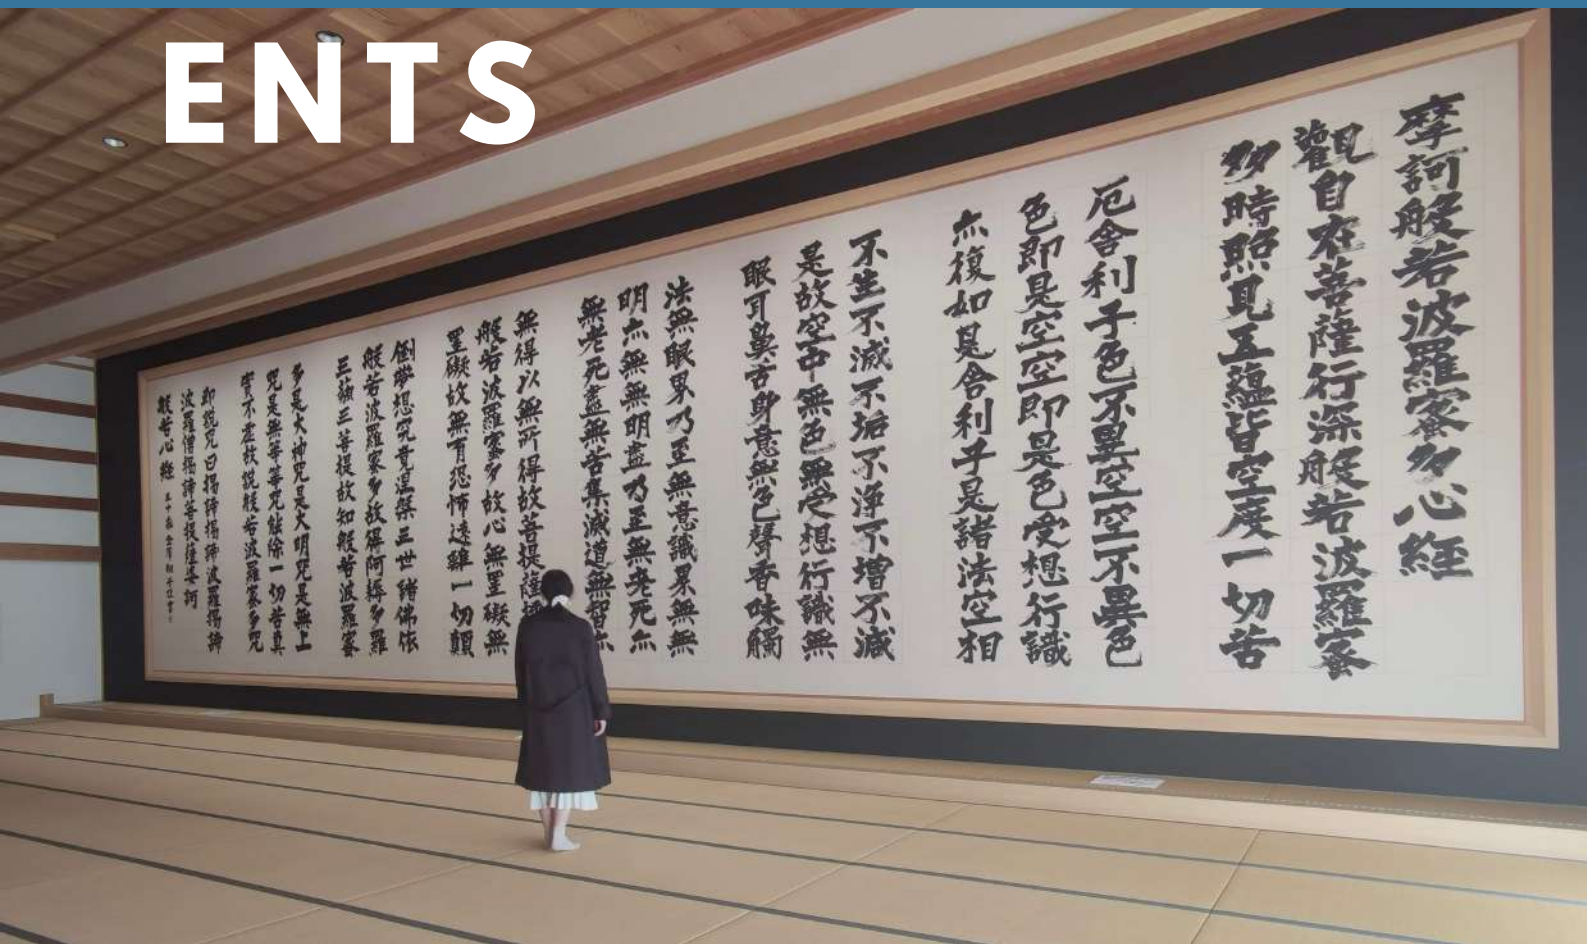 ENTS
摩訶般若波羅蜜多心経
觀自在菩薩行深般若波羅蜜
多時照見五蘊皆空度一切苦
厄舎利子色不異空空不異色
色即是空空即是色受想行識
亦復如是舎利子是諸法空相
不生不滅不垢不浄不増不減
是故空中無色無受想行識無
眼耳鼻舌身意無色聲香味觸
法無眼界乃至無意識界無無
明亦無無明盡乃至無老死亦
無老死盡無苦集滅道無智亦
無得以無所得故菩提薩
般若波羅蜜多故心無罣礙無
罣礙故無有恐怖遠離一切顛
倒夢想究竟涅槃三世諸佛依
般若波羅蜜多故得阿耨多羅
三藐三菩提故知般若波羅蜜
多是大神咒是大明咒是無上
咒是無等等咒能除一切苦真
實不虚故説般若波羅蜜多咒
即説咒曰揭諦揭諦波羅揭諦
波羅僧揭諦菩提薩婆訶
般若心経